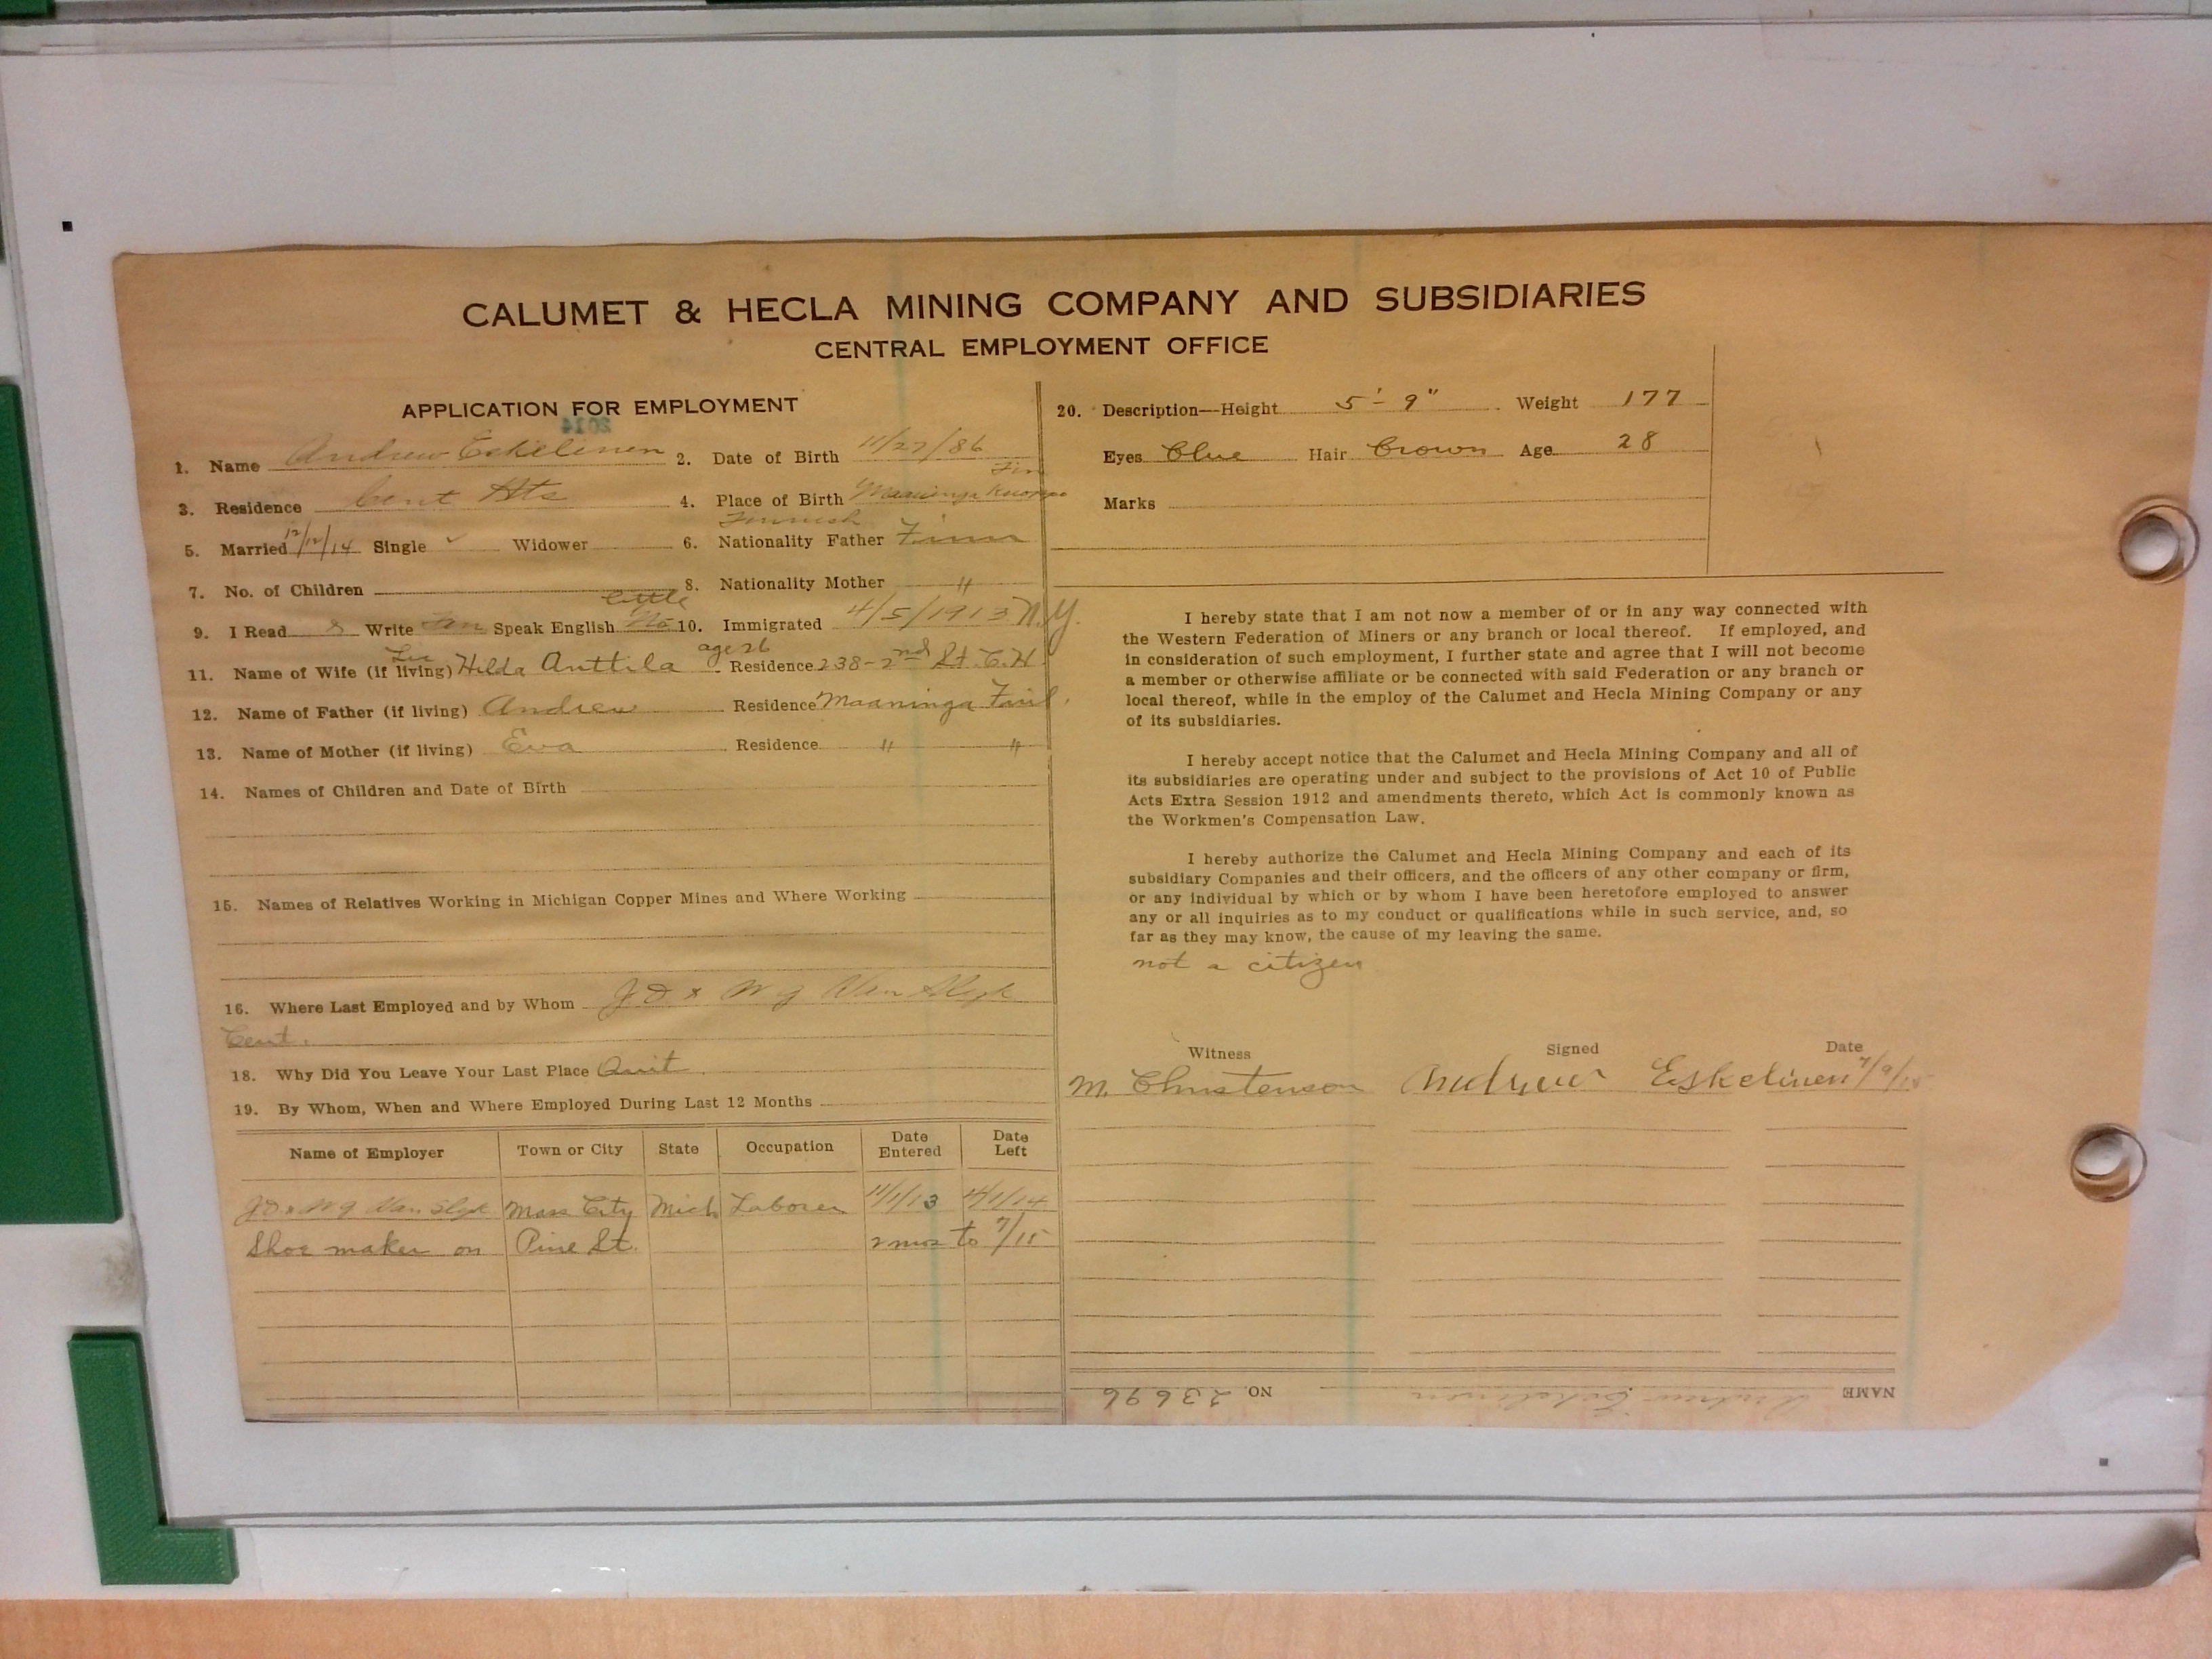 CALUMET & HECLA MINING COMPANY AND SUBSIDIARIES
CENTRAL EMPLOYMENT OFFICE
APPLICATION FOR EMPLOYMENT
1. Name Andrew Eskelinen 2. Date of Birth 11/27/86
Fin
3. Residence Cent Hts 4. Place of Birth Maaninga Kuopio
Finnish
5. Married 12/12/14 Single ✓ Widower 6. Nationality Father Finn
7. No. of Children 8. Nationality Mother "
little
9. I Read & Write Fin Speak English No 10. Immigrated 4/5/1913 N.Y.
age 26
11. Name of Wife (if living) Hilda Anttila Residence 238-2nd St. C.H
12. Name of Father (if living) Andrew Residence Maaninga Finl.
13. Name of Mother (if living) Eva Residence " "
14. Names of Children and Date of Birth
15. Names of Relatives Working in Michigan Copper Mines and Where Working
16. Where Last Employed and by Whom J D & W G Van Slyk
Cent.
18. Why Did You Leave Your Last Place Quit.
19. By Whom, When and Where Employed During Last 12 Months
Name of Employer Town or City State Occupation Date Entered Date Left
J D & W G Van Slyk Mass City Mich Laborer 11/1/13 4/1/14
Shoe maker on Pine St. 2 mos to 7/15
20. Description—Height 5'-9" Weight 177
Eyes Blue Hair Brown Age 28
Marks
I hereby state that I am not now a member of or in any way connected with
the Western Federation of Miners or any branch or local thereof. If employed, and
in consideration of such employment, I further state and agree that I will not become
a member or otherwise affiliate or be connected with said Federation or any branch or
local thereof, while in the employ of the Calumet and Hecla Mining Company or any
of its subsidiaries.
I hereby accept notice that the Calumet and Hecla Mining Company and all of
its subsidiaries are operating under and subject to the provisions of Act 10 of Public
Acts Extra Session 1912 and amendments thereto, which Act is commonly known as
the Workmen's Compensation Law.
I hereby authorize the Calumet and Hecla Mining Company and each of its
subsidiary Companies and their officers, and the officers of any other company or firm,
or any individual by which or by whom I have been heretofore employed to answer
any or all inquiries as to my conduct or qualifications while in such service, and, so
far as they may know, the cause of my leaving the same.
not a citizen
Witness Signed Date
M. Christenson Andrew Eskelinen 7/9/15
NAME Andrew Eskelinen NO. 23696